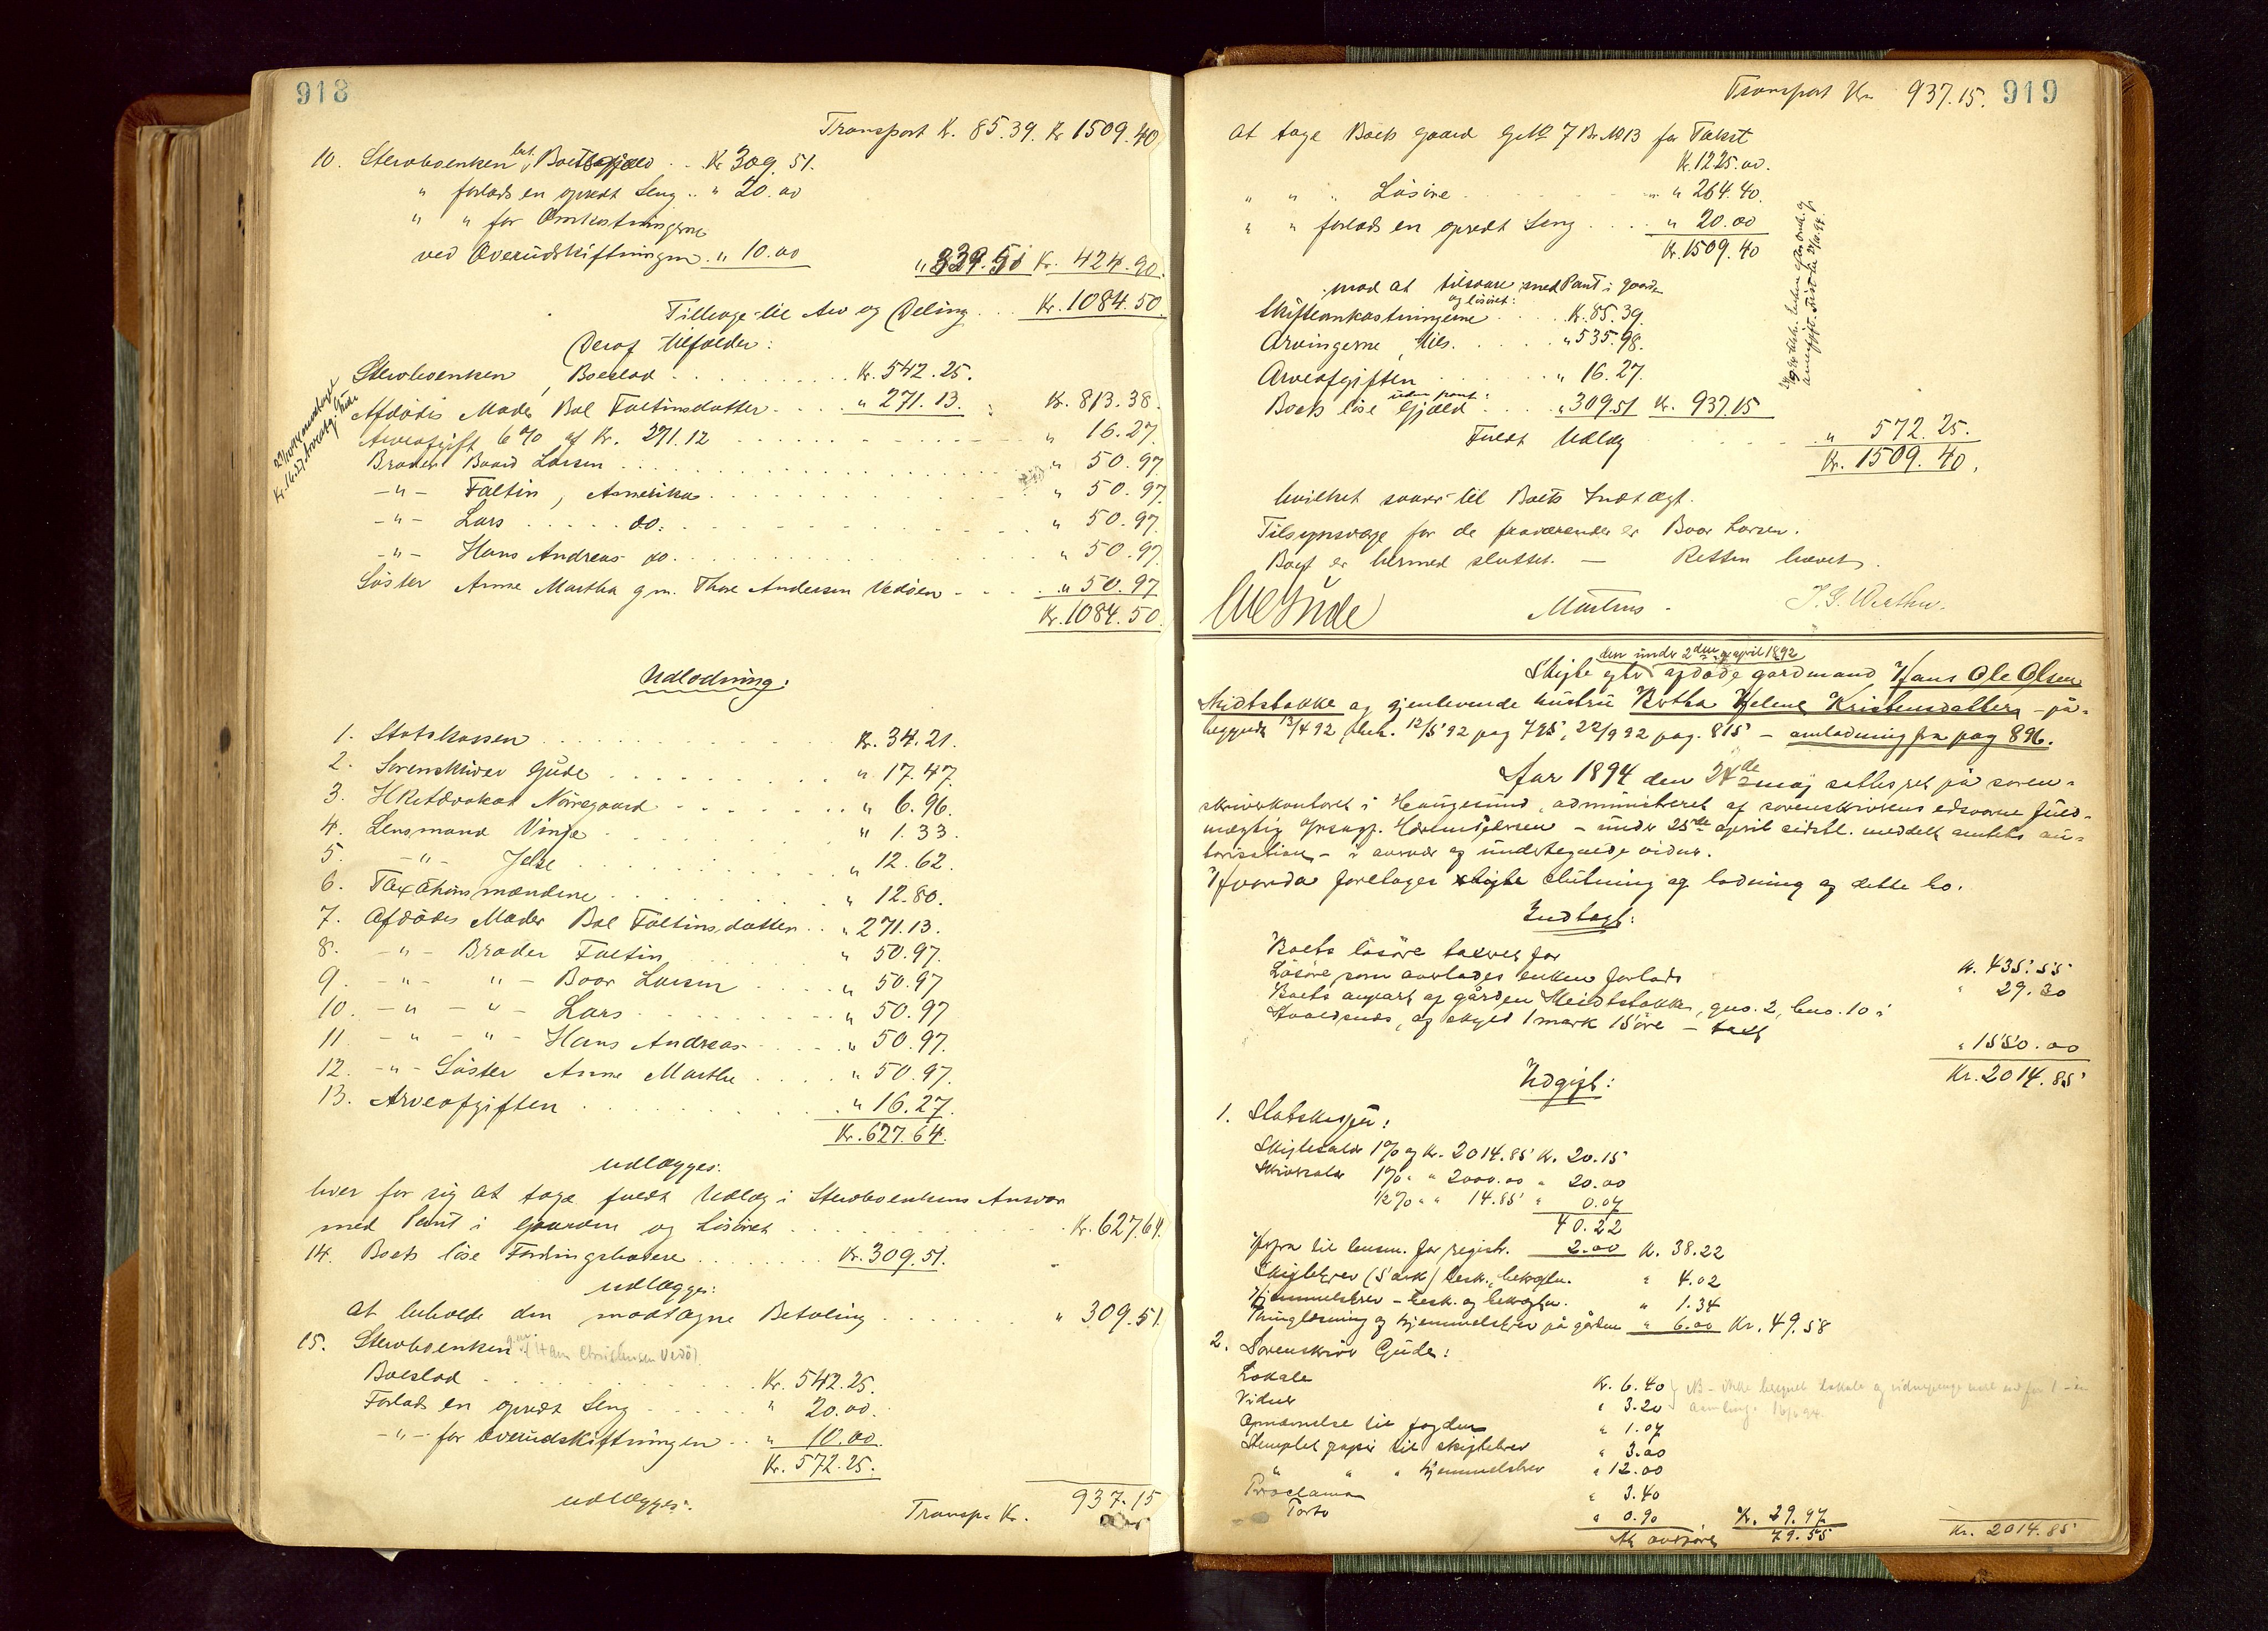 918
Transport K. 85.39. Kr 1509.40
10. Stervboenken bet. Boets gjæld . . Kr 309.51.
" forlods en opredt Seng . . " 20.00
" " for Omkostningerne
ved Overudskiftningen . " 10.00 " 339.51 Kr. 424.90.
Tilbage til Arv og Deling . . . Kr. 1084.50
Deraf tilfalder:
Stervboenken, Boeslod . . . Kr. 542.25.
Afdødes Moder, Bol Faltinsdatter . . . " 271.13. : Kr. 813.38.
Arveafgift 6 % af Kr. 271.12 . . . " 16.27.
Broder Baard Larsen . . . " 50.97
-"- Faltin, Amerika . . . " 50.97.
-"- Lars . . . do. . . . " 50.97.
-"- Hans Andreas do. . . . " 50.97.
Søster Anne Martha g.m. Thore Andersen Vedøen - . . . " 50.97
Kr. 1084.50.
Udlodning:
1. Statskassen . . . Kr. 34.21.
2. Sorenskriver Gude . . . " 17.47.
3. HRetadvokat Nørregaard . . . " 6.96.
4. Lensmand Vinje . . . " 1.33.
5. -"- Jelse . . . " 12.62.
6. Taxationsmændene . . . " 12.80.
7. Afdødes Moder Bol Faltinsdatter . . " 271.13.
8. -"- Broder Faltin . . . " 50.97.
9. -"- "- Boar Larsen . . . " 50.97
10. -"- "- Lars . . . " 50.97
11. -"- "- Hans Andreas . . . " 50.97.
12. -"- Søster Anne Marthe . . . " 50.97.
13. Arveafgiften . . . " 16.27.
Kr. 627.64.
udlægges:
hver for sig at tage fuldt Udlæg i Stervboenkens Ansvar
med Pant i Gaarden og Løsøret . . . Kr. 627.64.
14. Boets løse Fordringshavere . . . Kr. 309.51.
udlægges:
at beholde den modtagne Betaling . . . " 309.51.
15. Stervboenken g.m. Christensen Vedø
Boeslod . . . Kr. 542.25.
Forlods en opredt Seng . . . " 20.00.
-"- for Overudskiftningen . . " 10.00.
Kr. 572.25.
udlægges: Transp. Kr. 937.15
Transport Kr. 937.15. 919
at tage Boets Gaard GNo 7 Br.No 13 for Takst
Kr. 1225.00.
" " " Løsøre . . . " 264.40.
" " forlods en opredt Seng . . . " 20.00
Kr. 1509.40
mod at tilsvare med Pant i gaarden
og løsøret:
Skifteomkostningerne . . . Kr. 85.39.
Arvingerne, tils. . . . " 535.98.
Arveafgiften . . . " 16.27.
uden pant:
Boets løse Gjæld . . . " 309.51 Kr. 937.15
Fuldt Udlæg . . . " 572.25.
Kr. 1509.40.
hvilket svarer til Boets Indtægt.
Tilsynsværge for de fraværende er Boar Larsen.
Boet er hermed sluttet. — Retten hævet.
Gude Mortens
den under 2den april 1892
Skifte efter afdøde gardmand Hans Ole Olsen
Meidtstokke og gjenlevende hustru Bertha Helene Kristensdatter — på-
begyndt 13/4 92, beh. 12/5 92 pag 795, 22/9 92 pag. 815 — omlodning fra pag 896.
Aar 1894 den 24de maj sattes ret på soren-
skriverkontoret i Haugesund, administreret af sorenskriverens edsvorne fuld-
mægtig — under 25de april sidstl. meddelt amtets au-
torisation — i overvær af undertegnede vidner.
Hvorda foretages slutning og lodning af dette bo.
Indtægt:
Boets løsøre takeret for . . . Kr. 435.55
Løsøre som overlades enken forlods " 29.30
Boets anpart af gården Meidtstokke, gno. 2, bno. 10 i
Skaaldsnes, af skyld 1 mark 15 øre — takst " 1550.00
Kr. 2014.85
Udgift:
1. Statskassen:
Skiftesalær 1 % af Kr. 2014.85 Kr. 20.15
Skriversalær 1 % " " 2000.00 " 20.00
1/2 % " " 14.85 " 0.07
40.22
Herfra til lensm. for registr. 2.00 K. 38.22
Skiftebrev (5 ark) besk., bekræftn. " 4.02
Hjemmelsbrev — besk. og bekræftn. " 1.34
Thinglæsning af hjemmelsbrev på gården " 6.00 Kr. 49.58
2. Sorenskriv. Gude:
Lokale Kr. 6.40 NB — ikke beregnet lokale og vidnepenge for 1 -
Vidner " 3.20 samling. 16/6 94.
Opnævnelse til fogden " 1.07
Stemplet papir til skiftebrev " 3.00
" " " hjemmelsbrev " 12.00
Proclama " 3.40
Porto " 0.90 Kr. 29.97
At overføre 79.55 Kr. 2014.85